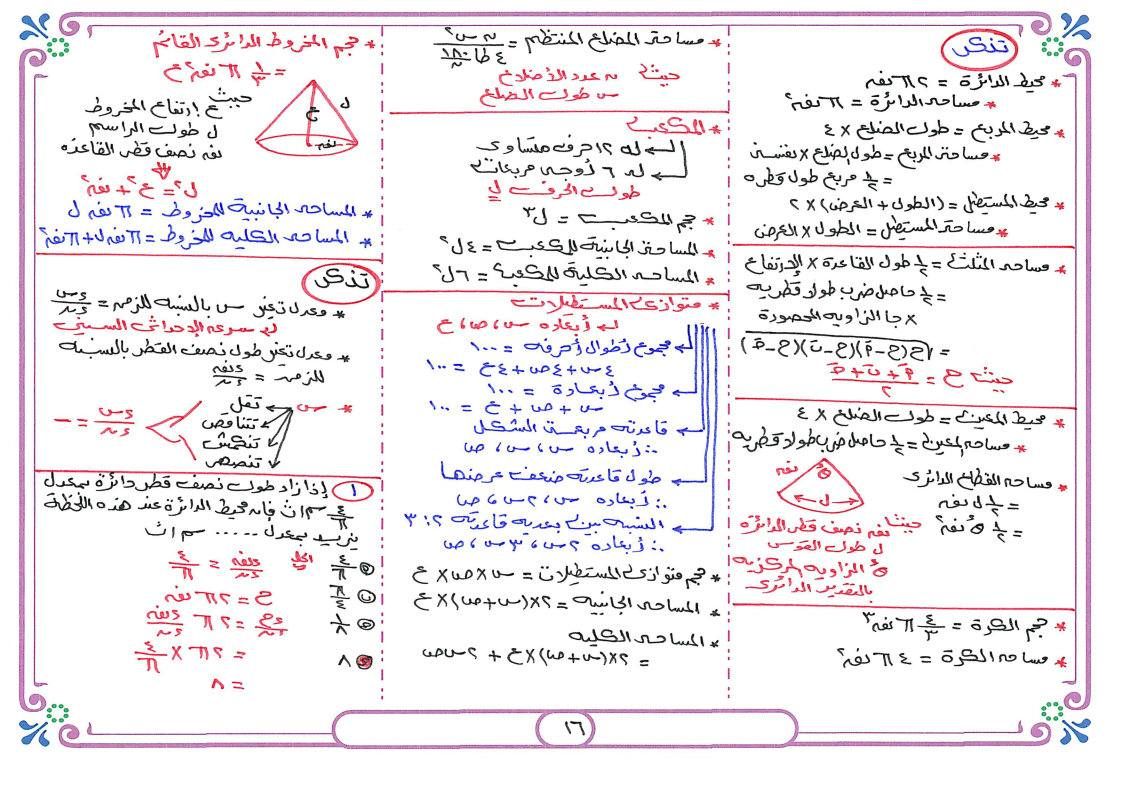 تذكر
* محيط الدائرة = ٢ π نق
* مساحة الدائرة = π نق٢
* محيط المربع = طول الضلع × ٤
* مساحة المربع = طول الضلع × نفسه
= ١/٢ مربع طول قطره
* محيط المستطيل = (الطول + العرض) × ٢
* مساحة المستطيل = الطول × العرض
* مساحة المثلث = ١/٢ طول القاعدة × الارتفاع
= ١/٢ حاصل ضرب طولا قطريه
× جا الزاويه المحصورة
= √ح(ح-أَ)(ح-بَ)(ح-حَ)
حيث ح = (أَ + بَ + حَ)/٢
* محيط المعين = طول الضلع × ٤
* مساحة المعين = ١/٢ حاصل ضرب طولا قطريه
* مساحه القطاع الدائرى
= ١/٢ ل نق
= ١/٢ هـ نق٢
نق
هـ
ل
حيث نق نصف قطر الدائرة
ل طول القوس
هـ الزاويه المركزيه
بالتقدير الدائرى
* حجم الكرة = ٤/٣ π نق٣
* مساحه الكرة = ٤ π نق٢
* مساحة المضلع المنتظم = ن س٢ / ٤ ظا ١٨٠/ن
حيث ن عدد الأضلاع
س طول الضلع
* المكعب
له ١٢ حرف متساوى
له ٦ أوجه مربعات
طول الحرف ل
* حجم المكعب = ل٣
* المساحة الجانبية للمكعب = ٤ ل٢
* المساحه الكلية للمكعب = ٦ ل٢
* متوازى المستطيلات
أبعاده س ، ص ، ع
مجموع أطوال أحرفه = ١٠٠
٤ س + ٤ ص + ٤ ع = ١٠٠
مجموع أبعادة = ١٠٠
س + ص + ع = ١٠٠
قاعدته مربعة الشكل
∴ أبعاده س ، س ، ص
طول قاعدته ضعف عرضها
∴ أبعاده س ، ٢ س ، ص
النسبه بين بعديه قاعدته ٢ : ٣
∴ أبعاده ٢ س ، ٣ س ، ص
* حجم متوازى المستطيلات = س × ص × ع
* المساحه الجانبيه = ٢ × (س + ص) × ع
* المساحه الكليه
= ٢ × (س + ص) × ع + ٢ س ص
* حجم المخروط الدائرى القائم
= ١/٣ π نق٢ ع
حيث ع ارتفاع المخروط
ل طول الراسم
نق نصف قطر القاعده
ل
ع
نق
ل٢ = ع٢ + نق٢
* المساحه الجانبية للمخروط = π نق ل
* المساحه الكليه للمخروط = π نق ل + π نق٢
تذكر
* معدل تغير س بالنسبه للزمن = ءس/ءن
سرعه الإحداثى السينى
* معدل تغير طول نصف القطر بالنسبة
للزمن = ءنق/ءن
* س
تقل
تتناقص
تنكمش
تنصهر
ءس/ءن = -
١ إذا زاد طول نصف قطر دائرة بمعدل
٤/π سم/ث فإنه محيط الدائرة عند هذه اللحظة
يزيد بمعدل ..... سم/ث
أ ٤/π
ب π/٤
ح ١/٨
ء ٨
الحل
ءنق/ءن = ٤/π
ح = ٢ π نق
ءح/ءن = ٢ π ءنق/ءن
= ٢ π × ٤/π
= ٨
١٦